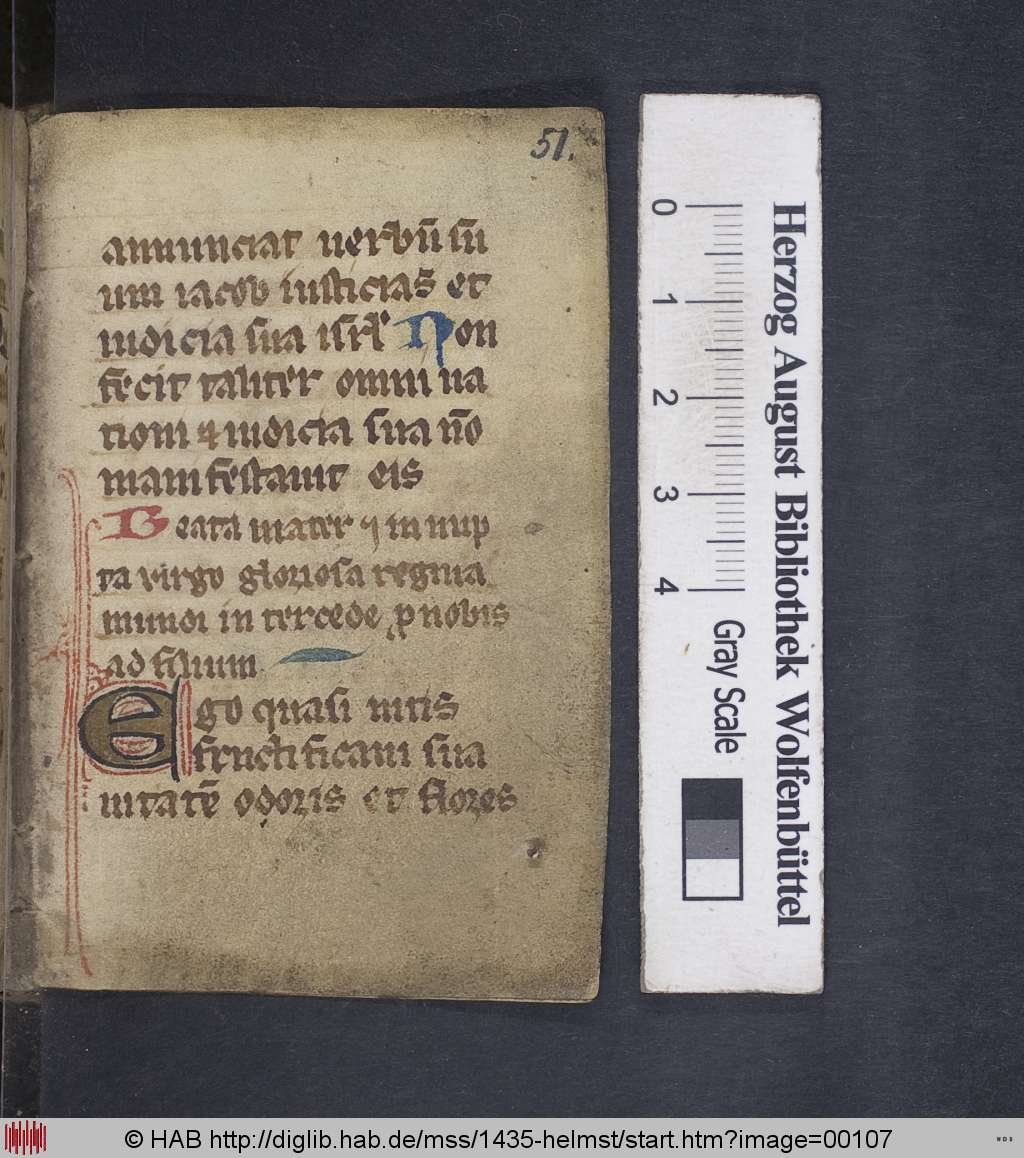 51.
annunciat uerbū sū
um iacob iusticias et
iudicia sua isrł Non
fecit taliter omni na
tioni & iudicia sua nō
manifestauit eis
Beata mater ⁊ in nup
ta virgo gloriosa regina
mundi in tercede ꝓ nobis
ad filium
Ego quasi uitis
fructificaui sua
uitatē odoris et flores
0 1 2 3 4
Gray Scale
Herzog August Bibliothek Wolfenbüttel
© HAB http://diglib.hab.de/mss/1435-helmst/start.htm?image=00107
HAB